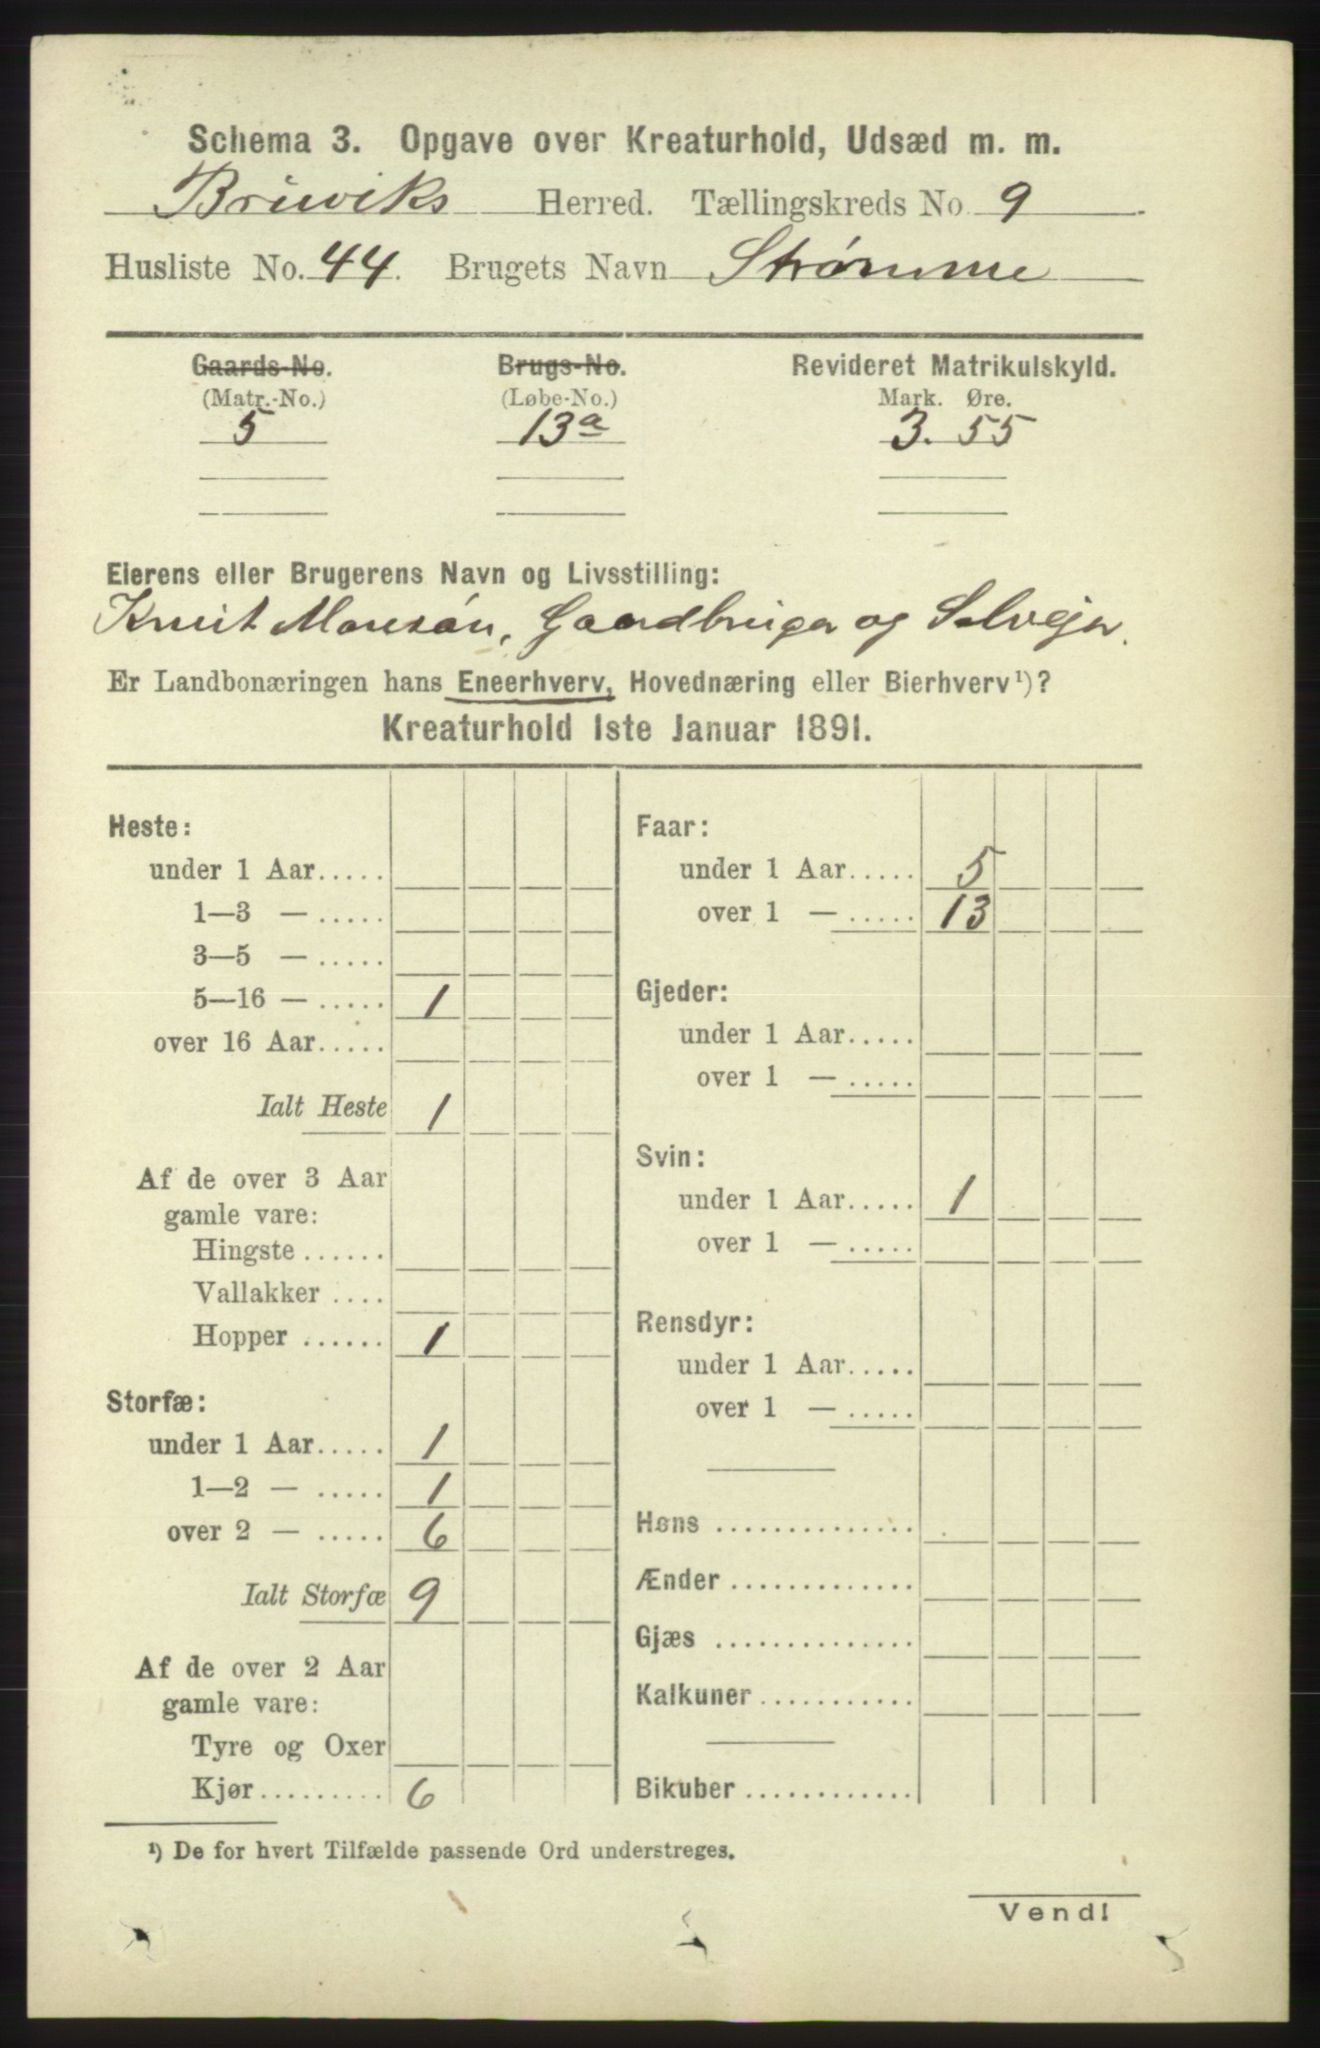 Schema 3. Opgave over Kreaturhold, Udsæd m. m.
Bruviks Herred. Tællingskreds No. 9
Husliste No. 44. Brugets Navn Strømme
Gaards-No. Brugs-No. Revideret Matrikulskyld.
(Matr.-No.) (Løbe-No.) Mark. Øre.
5 13a 3. 55
Eierens eller Brugerens Navn og Livsstilling:
Knut Monsøn, Gaardbruger og Selvejer.
Er Landbonæringen hans Eneerhverv, Hovednæring eller Bierhverv¹)?
Kreaturhold 1ste Januar 1891.
Heste:
under 1 Aar.....
1—3 — .....
3—5 — .....
5—16 — ..... 1
over 16 Aar.....
Ialt Heste 1
Af de over 3 Aar
gamle vare:
Hingste ......
Vallakker ....
Hopper ...... 1
Storfæ:
under 1 Aar..... 1
1—2 — ..... 1
over 2 — ..... 6
Ialt Storfæ 9
Af de over 2 Aar
gamle vare:
Tyre og Oxer
Kjør......... 6
Faar:
under 1 Aar..... 5
over 1 — ..... 13
Gjeder:
under 1 Aar.....
over 1 — .....
Svin:
under 1 Aar..... 1
over 1 — .....
Rensdyr:
under 1 Aar.....
over 1 — .....
Høns ..............
Ænder .............
Gjæs ..............
Kalkuner...........
Bikuber............
¹) De for hvert Tilfælde passende Ord understreges.
Vend!